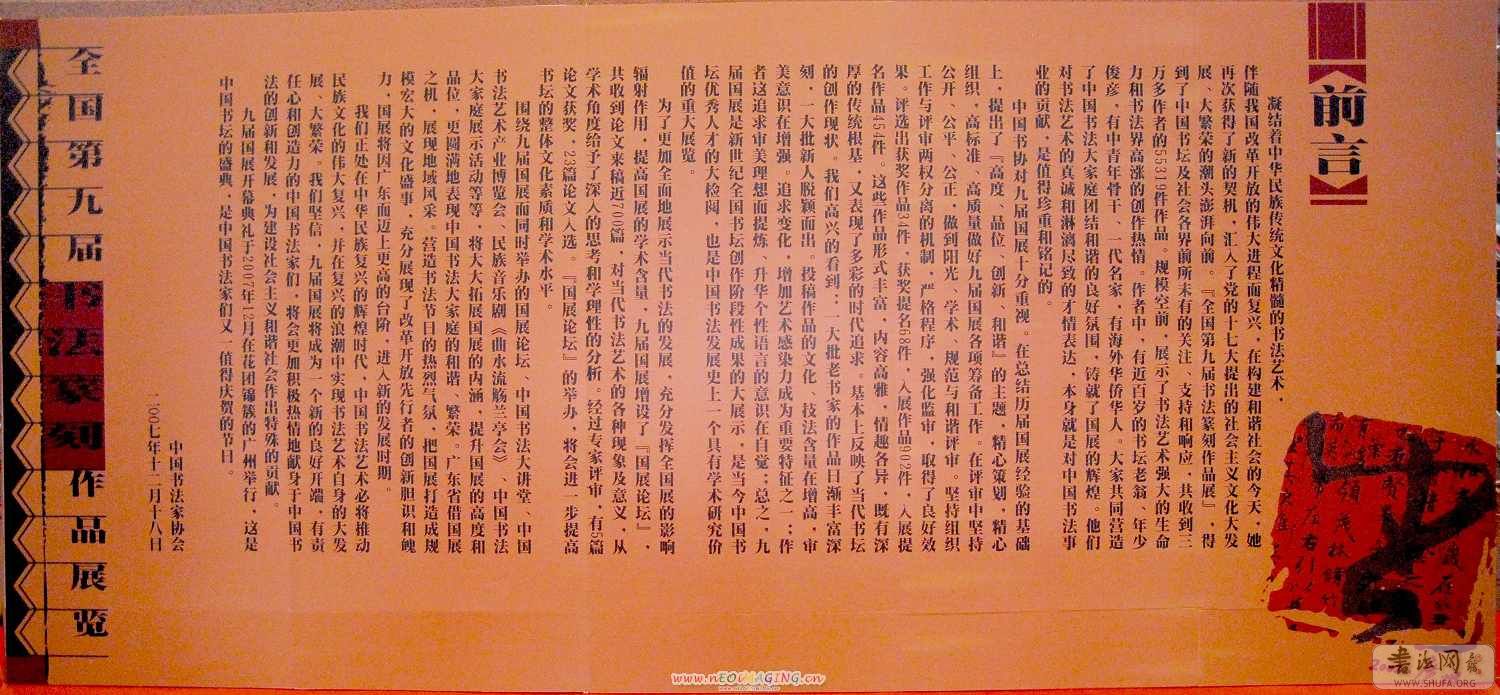 前言
凝结着中华民族传统文化精髓的书法艺术，
伴随我国改革开放的伟大进程而复兴，在构建和谐社会的今天，她
再次获得了新的契机，汇入了党的十七大提出的社会主义文化大发
展、大繁荣的潮头澎湃向前。『全国第九届书法篆刻作品展』，得
到了中国书坛及社会各界前所未有的关注、支持和响应，共收到三
万多作者的55319件作品。规模空前，展示了书法艺术强大的生命
力和书法界高涨的创作热情。作者中，有近百岁的书坛老翁、年少
俊彦，有中青年骨干、一代名家，有海外华侨华人。大家共同营造
了中国书法大家庭团结和谐的良好氛围，铸就了国展的辉煌。他们
对书法艺术的真诚和淋漓尽致的才情表达，本身就是对中国书法事
业的贡献，是值得珍重和铭记的。
中国书协对九届国展十分重视。在总结历届国展经验的基础
上，提出了『高度、品位、创新、和谐』的主题，精心策划，精心
组织，高标准、高质量做好九届国展各项筹备工作。在评审中坚持
公开、公平、公正，做到阳光、学术、规范与和谐评审。坚持组织
工作与评审两权分离的机制，严格程序，强化监审，取得了良好效
果。评选出获奖作品34件，获奖提名68件，入展作品902件，入展提
名作品454件。这些作品形式丰富，内容高雅，情趣各异，既有深
厚的传统根基，又表现了多彩的时代追求。基本上反映了当代书坛
的创作现状。我们高兴的看到：一大批老书家的作品日渐丰富深
刻，一大批新人脱颖而出。投稿作品的文化、技法含量在增高，审
美意识在增强。追求变化，增加艺术感染力成为重要特征之一；作
者这追求审美理想而提炼、升华个性语言的意识在自觉；总之，九
届国展是新世纪全国书坛创作阶段性成果的大展示，是当今中国书
坛优秀人才的大检阅，也是中国书法发展史上一个具有学术研究价
值的重大展览。
为了更加全面地展示当代书法的发展，充分发挥全国展的影响
辐射作用，提高国展的学术含量，九届国展增设了『国展论坛』，
共收到论文来稿近700篇，对当代书法艺术的各种现象及意义，从
学术角度给予了深入的思考和学理性的分析。经过专家评审，有5篇
论文获奖，23篇论文入选。『国展论坛』的举办，将会进一步提高
书坛的整体文化素质和学术水平。
围绕九届国展而同时举办的国展论坛、中国书法大讲堂、中国
书法艺术产业博览会、民族音乐剧《曲水流觞兰亭会》、中国书法
大家庭展示活动等等，将大大拓展国展的内涵，提升国展的高度和
品位，更圆满地表现中国书法大家庭的和谐、繁荣。广东省借国展
之机，展现地域风采。营造书法节日的热烈气氛，把国展打造成规
模宏大的文化盛事，充分展现了改革开放先行者的创新胆识和魄
力，国展将因广东而迈上更高的台阶，进入新的发展时期。
我们正处在中华民族复兴的辉煌时代，中国书法艺术必将推动
民族文化的伟大复兴，并在复兴的浪潮中实现书法艺术自身的大发
展、大繁荣。我们坚信，九届国展将成为一个新的良好开端，有责
任心和创造力的中国书法家们，将会更加积极热情地献身于中国书
法的创新和发展，为建设社会主义和谐社会作出特殊的贡献。
九届国展开幕典礼于2007年12月在花团锦簇的广州举行，这是
中国书坛的盛典，是中国书法家们又一值得庆贺的节日。
中国书法家协会
二〇〇七年十二月十八日
全国第九届书法篆刻作品展览
www.nEOIMAGING.cn
书法网
WWW.SHUFA.ORG